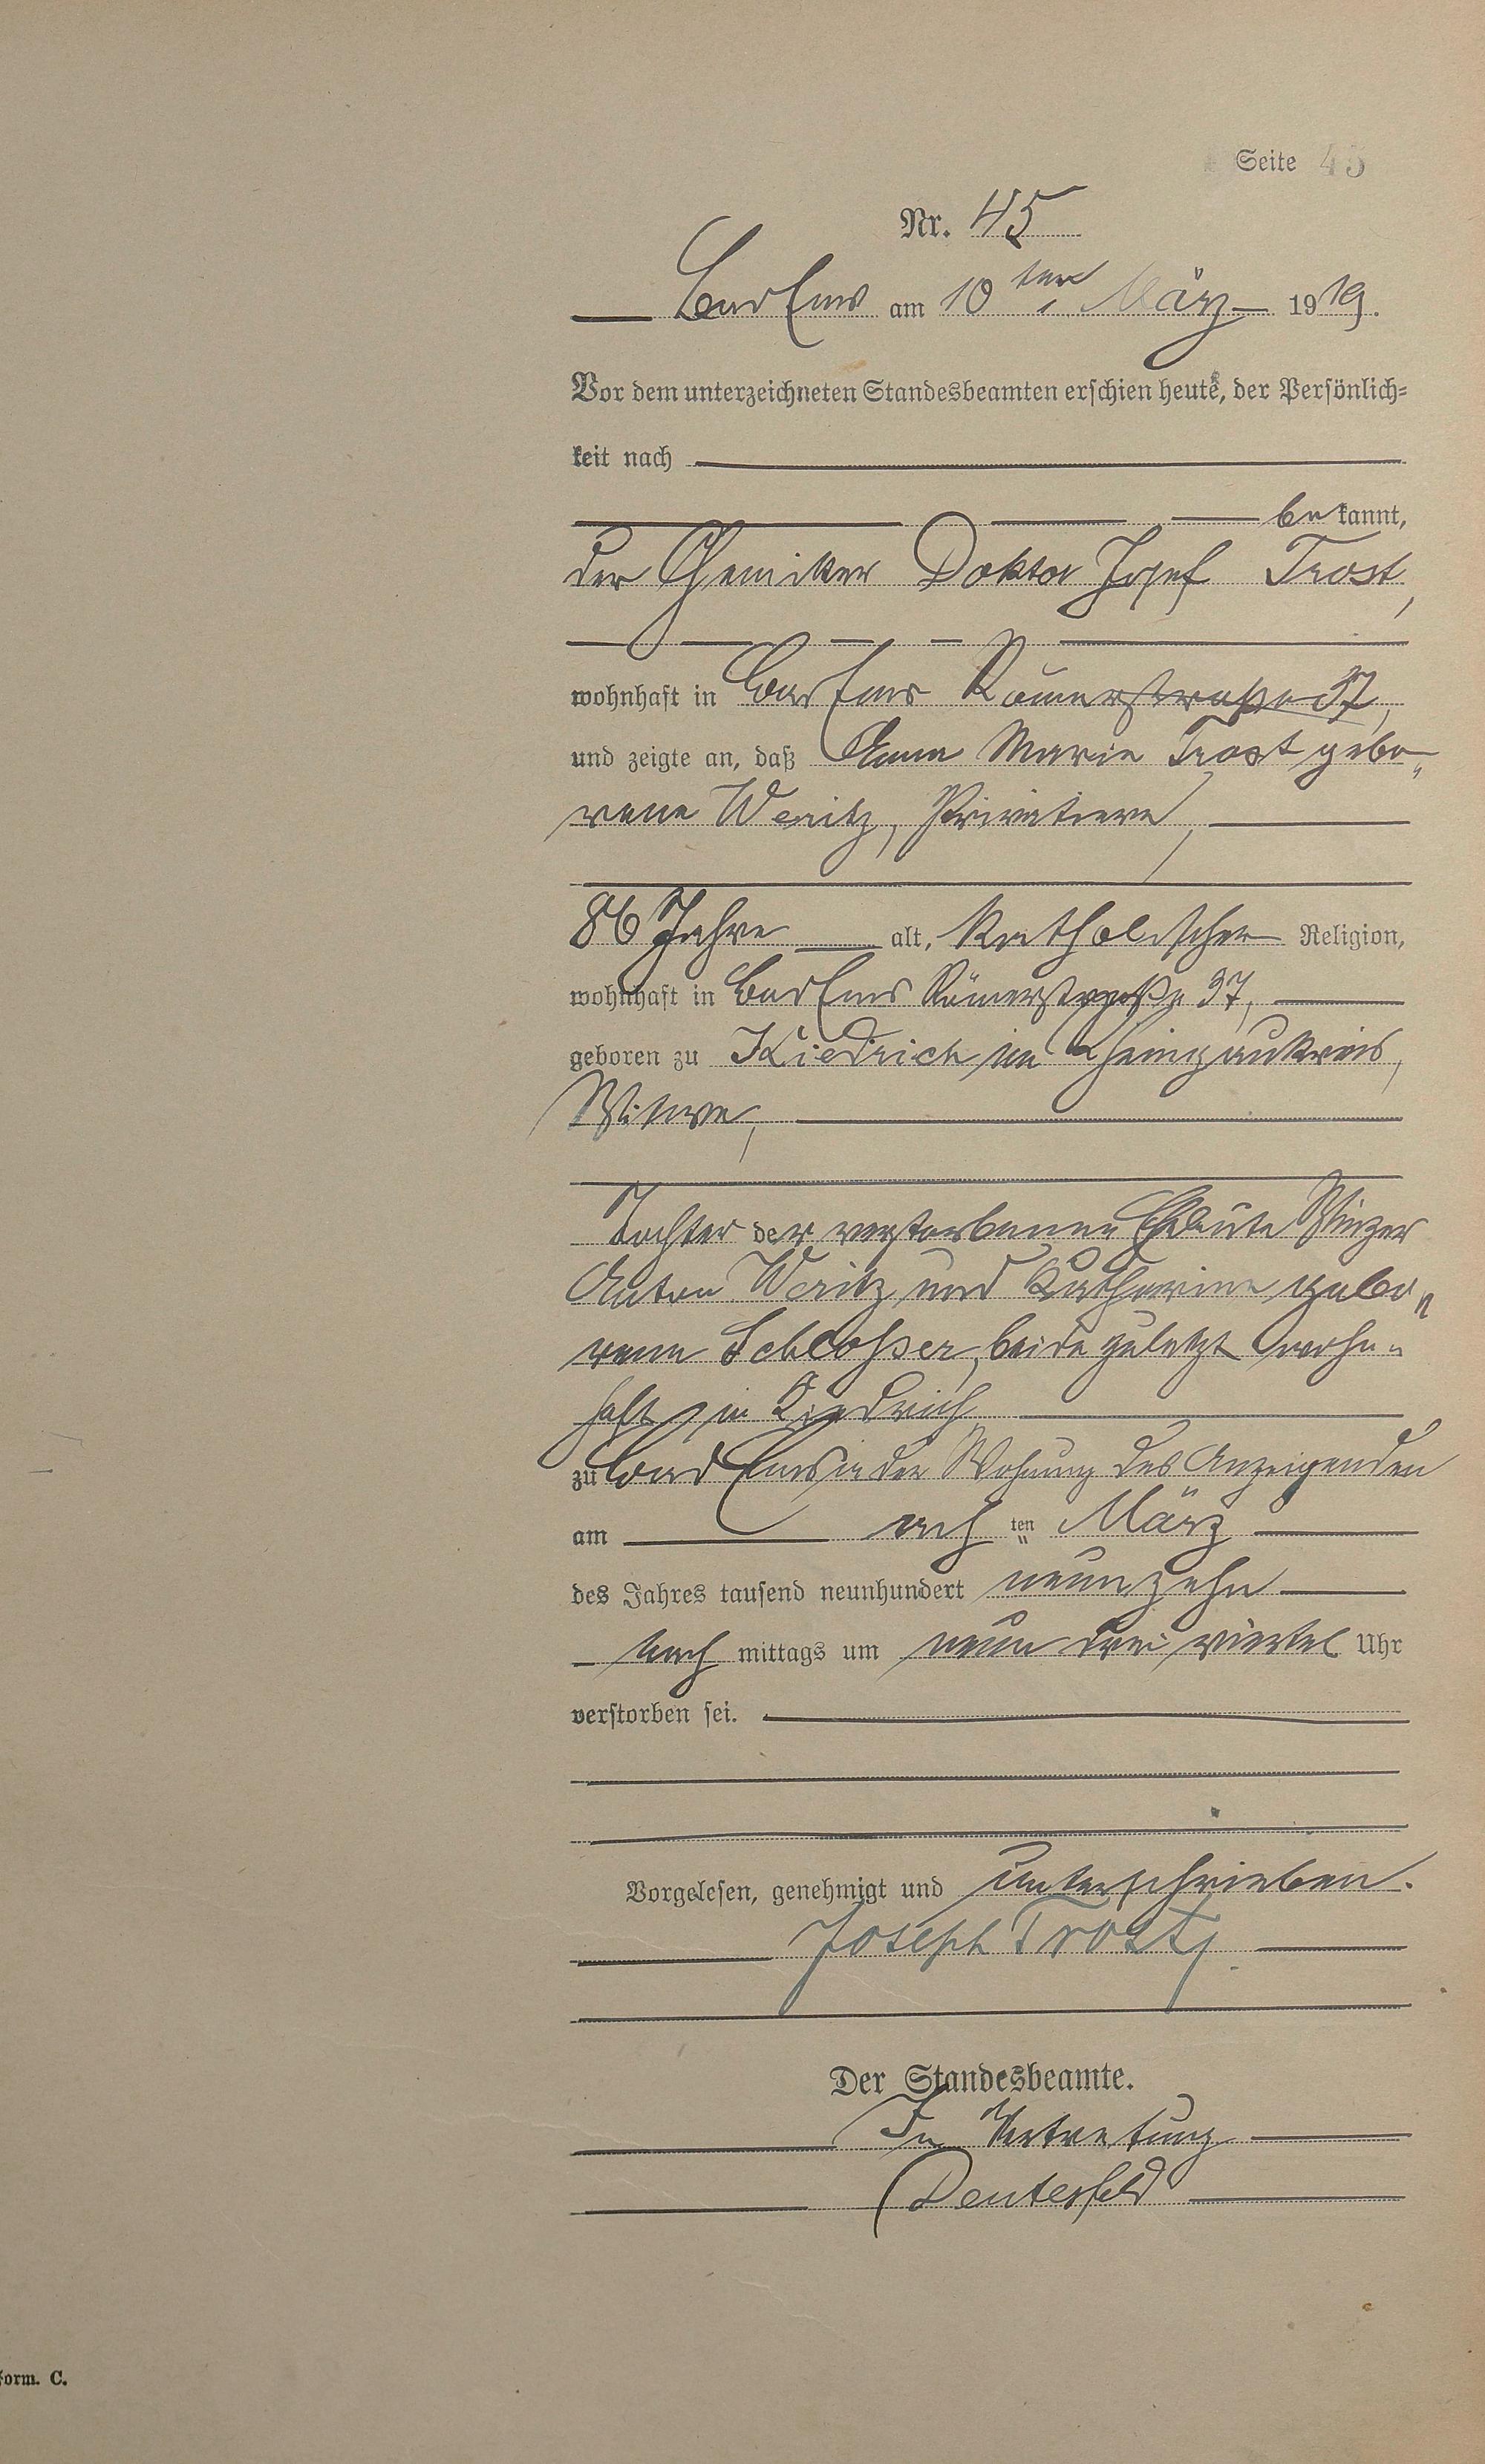 Seite 45
Nr. 45
Bad Ems am 10ten März 1919.
Vor dem unterzeichneten Standesbeamten erschien heute, der Persönlich=
keit nach
be kannt,
der Chemiker Doktor Josef Trost,
wohnhaft in Bad Ems Römerstraße 37,
und zeigte an, daß Anna Maria Trost gebo„
rene Weritz, Privatiere,
86 Jahre alt, katholischer Religion,
wohnhaft in Bad Ems Römerstraße 37,
geboren zu Kiedrich im Rheingaukreis,
Witwe,
Tochter der verstorbenen Eheleute Winzer
Anton Weritz und Katharina gebo„
rene Schloßer, beide zuletzt wohn„
haft in Kiedrich
zu Bad Ems in der Wohnung des Anzeigenden
am ach ten März
des Jahres tausend neunhundert neunzehn
nach mittags um neun drei viertel Uhr
verstorben sei.
Vorgelesen, genehmigt und unterschrieben.
Joseph Trost
Der Standesbeamte.
In Vertretung
Form. C.